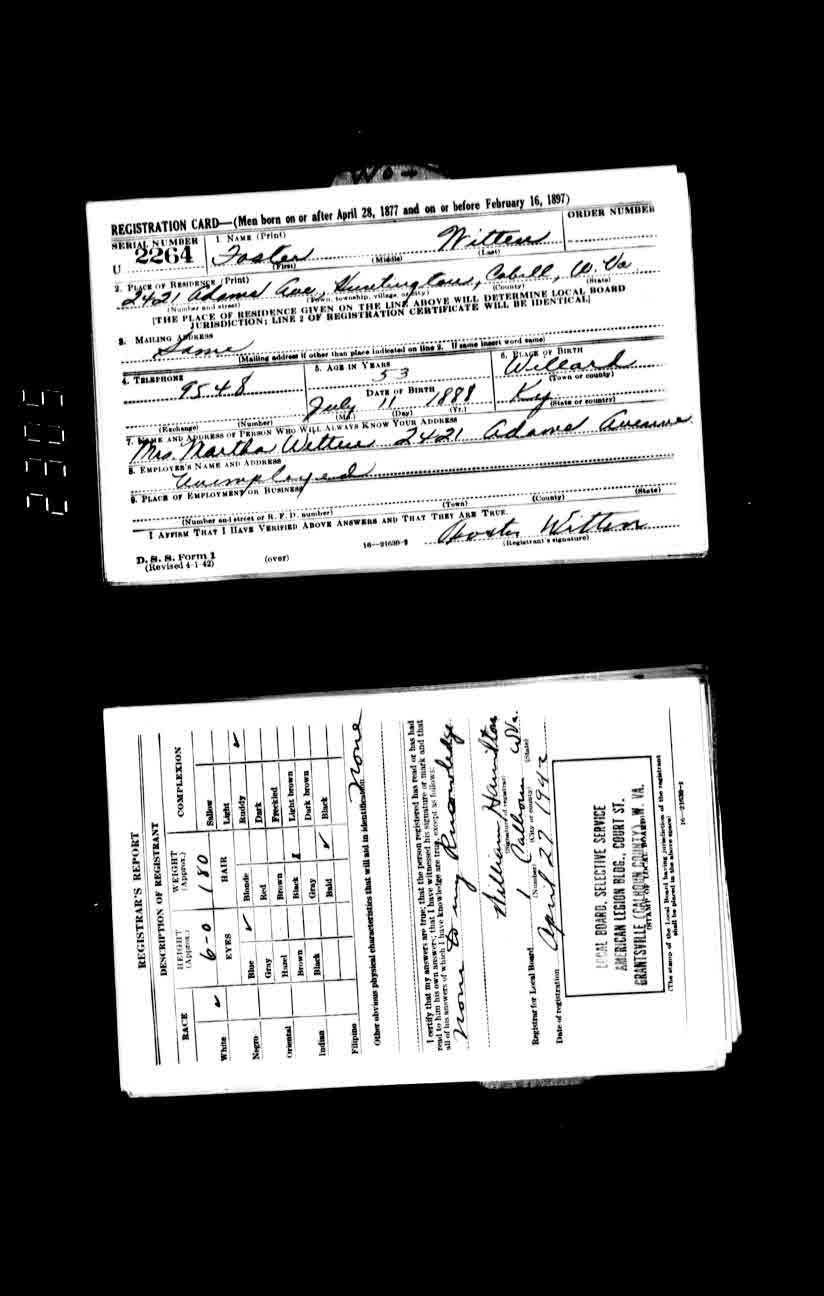 W O +
REGISTRATION CARD—(Men born on or after April 28, 1877 and on or before February 16, 1897)
SERIAL NUMBER 1. NAME (Print) ORDER NUMBER
U 2264 Foster Witten
(First) (Middle) (Last)
2. PLACE OF RESIDENCE (Print)
2421 Adams Ave, Huntington, Cabell, W. Va
(Number and street) (Town, township, village, or city) (County) (State)
[THE PLACE OF RESIDENCE GIVEN ON THE LINE ABOVE WILL DETERMINE LOCAL BOARD
JURISDICTION; LINE 2 OF REGISTRATION CERTIFICATE WILL BE IDENTICAL]
3. MAILING ADDRESS
Same
(Mailing address if other than place indicated on line 2. If same insert word same)
4. TELEPHONE 5. AGE IN YEARS 6. PLACE OF BIRTH
9548 53 Willard
DATE OF BIRTH (Town or county)
July 11 1888 Ky
(Exchange) (Number) (Mo.) (Day) (Yr.) (State or country)
7. NAME AND ADDRESS OF PERSON WHO WILL ALWAYS KNOW YOUR ADDRESS
Mrs. Martha Witten 2421 Adams Avenue
8. EMPLOYER'S NAME AND ADDRESS
Unemployed
9. PLACE OF EMPLOYMENT OR BUSINESS
(Number and street or R. F. D. number) (Town) (County) (State)
I AFFIRM THAT I HAVE VERIFIED ABOVE ANSWERS AND THAT THEY ARE TRUE.
Foster Witten
D. S. S. Form 1 (over) 16—21630-2 (Registrant's signature)
(Revised 4-1-42)
2305
REGISTRAR'S REPORT
DESCRIPTION OF REGISTRANT
RACE HEIGHT (Approx.) WEIGHT (Approx.) COMPLEXION
6-0 180 Sallow
White ✓ EYES HAIR Light
Negro Blue ✓ Blonde Ruddy ✓
Gray Red Dark
Oriental Hazel Brown Freckled
Brown Black X Light brown
Indian Black Gray Dark brown
Bald ✓ Black
Filipino
Other obvious physical characteristics that will aid in identification None
I certify that my answers are true; that the person registered has read or has had
read to him his own answers; that I have witnessed his signature or mark and that
all of his answers of which I have knowledge are true, except as follows:
None to my Knowledge
William Hamilton
(Signature of registrar)
Registrar for Local Board 1 Calhoun W Va.
(Number) (City or county) (State)
Date of registration April 27 1942
LOCAL BOARD, SELECTIVE SERVICE
AMERICAN LEGION BLDG., COURT ST.
GRANTSVILLE (CALHOUN COUNTY), W. VA.
(STAMP OF LOCAL BOARD)
(The stamp of the Local Board having jurisdiction of the registrant
shall be placed in the above space)
16—21630-2